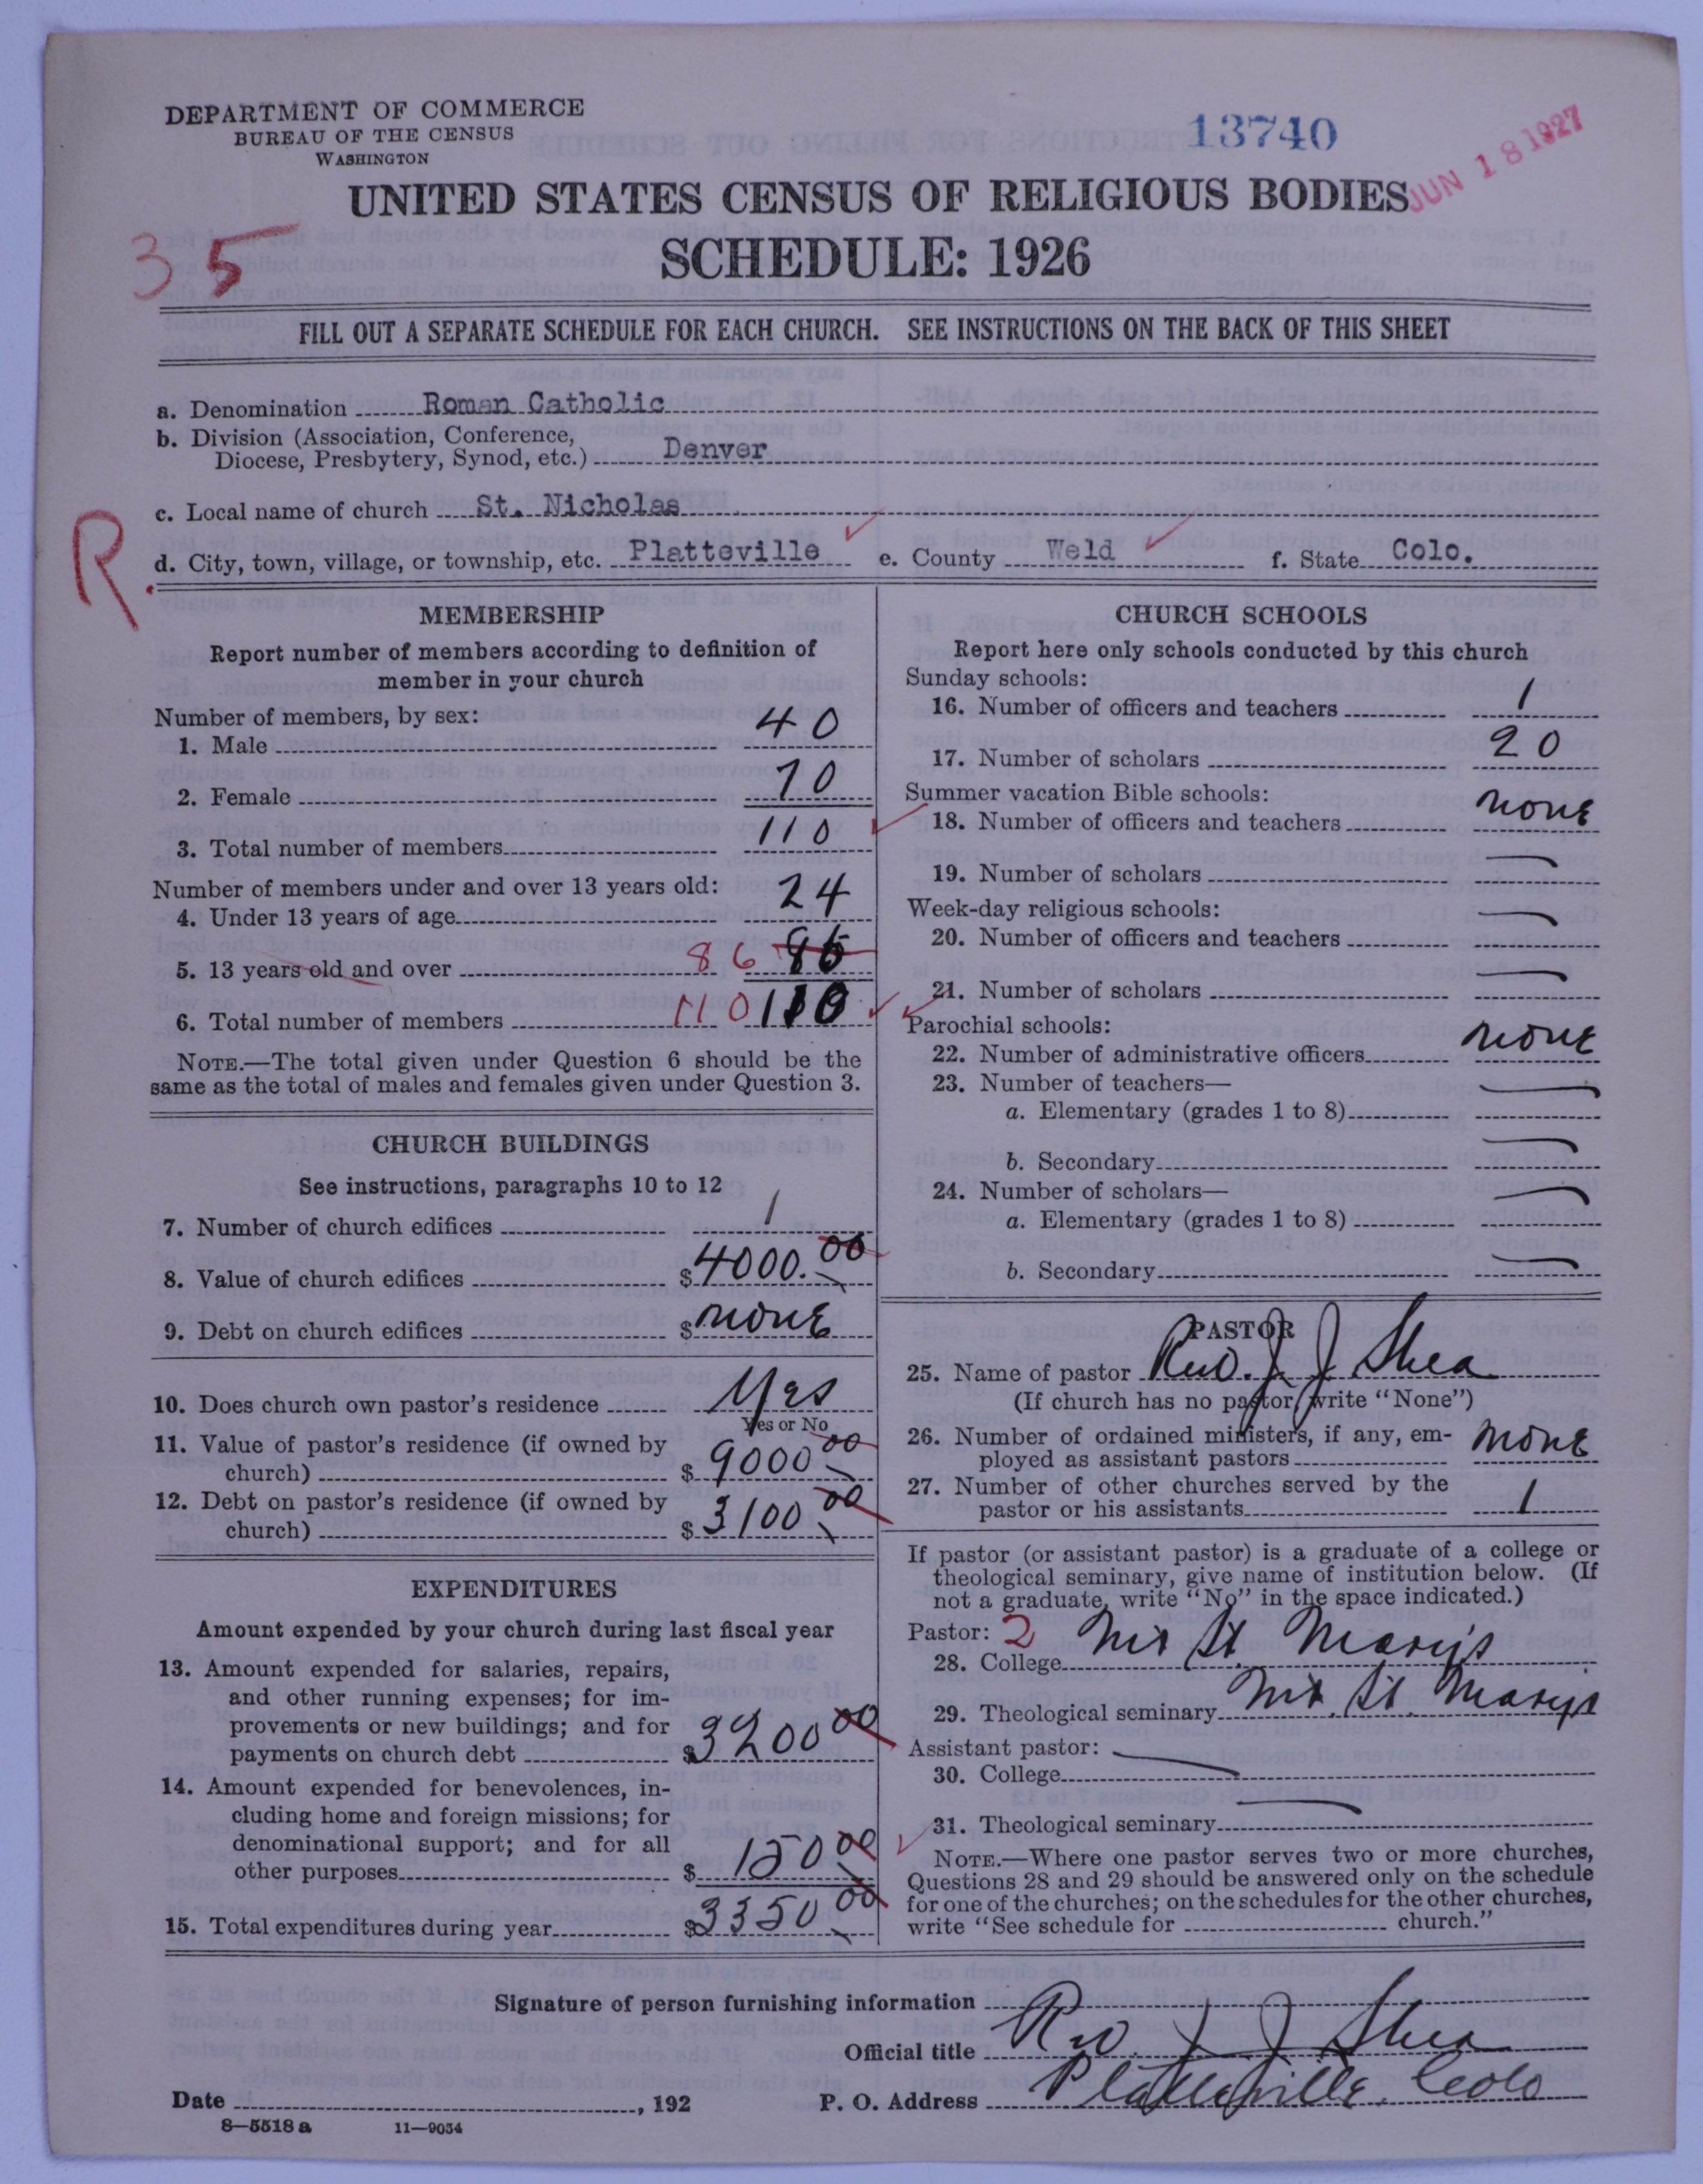 DEPARTMENT OF COMMERCE
BUREAU OF THE CENSUS
WASHINGTON
13740
JUN 18 1927
UNITED STATES CENSUS OF RELIGIOUS BODIES
SCHEDULE: 1926
35
FILL OUT A SEPARATE SCHEDULE FOR EACH CHURCH. SEE INSTRUCTIONS ON THE BACK OF THIS SHEET
a. Denomination Roman Catholic
b. Division (Association, Conference,
Diocese, Presbytery, Synod, etc.) Denver
c. Local name of church St. Nicholas
R.
d. City, town, village, or township, etc. Platteville e. County Weld f. State Colo.
MEMBERSHIP
Report number of members according to definition of
member in your church
Number of members, by sex:
1. Male 40
2. Female 70
3. Total number of members 110
Number of members under and over 13 years old:
4. Under 13 years of age 24
5. 13 years old and over 86 86
6. Total number of members 110 110
NOTE.—The total given under Question 6 should be the
same as the total of males and females given under Question 3.
CHURCH BUILDINGS
See instructions, paragraphs 10 to 12
7. Number of church edifices 1
8. Value of church edifices $4000.00
9. Debt on church edifices $none
10. Does church own pastor's residence Yes
Yes or No
11. Value of pastor's residence (if owned by
church) $9000 00
12. Debt on pastor's residence (if owned by
church) $3100 00
EXPENDITURES
Amount expended by your church during last fiscal year
13. Amount expended for salaries, repairs,
and other running expenses; for im-
provements or new buildings; and for
payments on church debt $3200 00
14. Amount expended for benevolences, in-
cluding home and foreign missions; for
denominational support; and for all
other purposes $150 00
15. Total expenditures during year $3350 00
CHURCH SCHOOLS
Report here only schools conducted by this church
Sunday schools:
16. Number of officers and teachers 1
17. Number of scholars 20
Summer vacation Bible schools:
18. Number of officers and teachers none
19. Number of scholars —
Week-day religious schools:
20. Number of officers and teachers —
21. Number of scholars —
Parochial schools:
22. Number of administrative officers none
23. Number of teachers—
a. Elementary (grades 1 to 8) —
b. Secondary —
24. Number of scholars—
a. Elementary (grades 1 to 8) —
b. Secondary —
PASTOR
25. Name of pastor Rev. J J Shea
(If church has no pastor, write "None")
26. Number of ordained ministers, if any, em-
ployed as assistant pastors none
27. Number of other churches served by the
pastor or his assistants 1
If pastor (or assistant pastor) is a graduate of a college or
theological seminary, give name of institution below. (If
not a graduate, write "No" in the space indicated.)
Pastor: 2
28. College Mt St. Mary's
29. Theological seminary Mt. St. Marys
Assistant pastor: —
30. College
31. Theological seminary —
NOTE.—Where one pastor serves two or more churches,
Questions 28 and 29 should be answered only on the schedule
for one of the churches; on the schedules for the other churches,
write "See schedule for church."
Signature of person furnishing information Rev. J J Shea
Official title
Date , 192 P. O. Address Platteville. Colo
8—5518a 11—9034